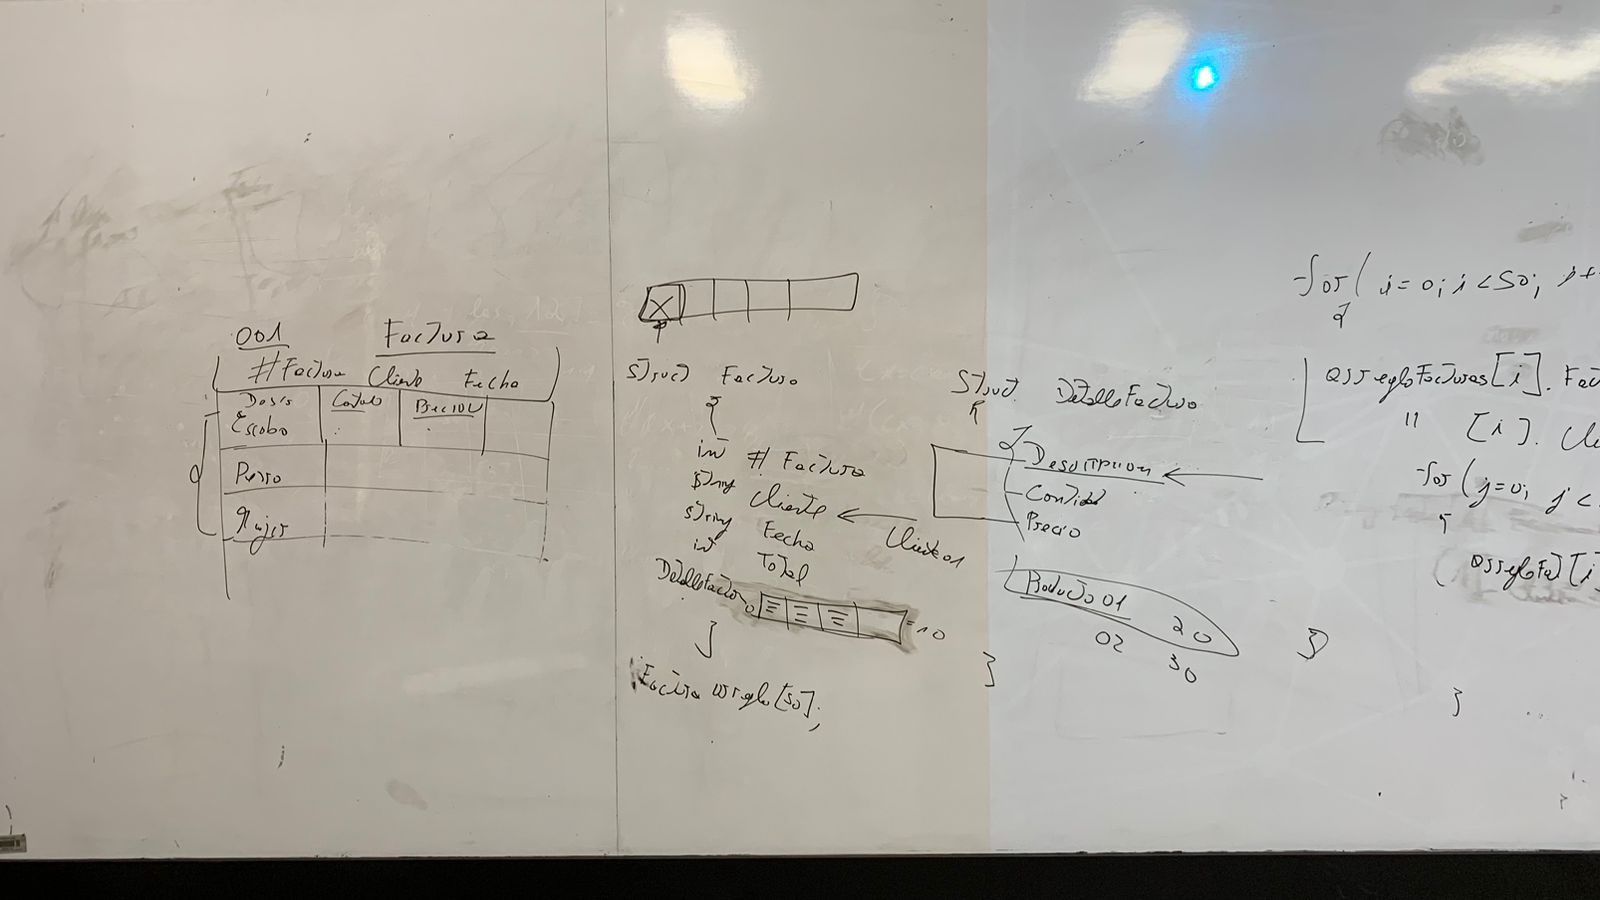 001 Factura
#Factura Cliente Fecha
Escoba
Precio
struct Factura
{
int # Factura
string Cliente
string Fecha
int Total
DetalleFactura
= 10
}
Factura arreglo[50];
Cliente 01
Struct DetalleFactura
{
Descripcion
Cantidad
Precio
Producto 01 20
02 30
}
for( i=0; i<50; i+
{
arregloFacturas[i]. Fac
" [i]. Cli
for (j=0; j<
{
[i]
}
}